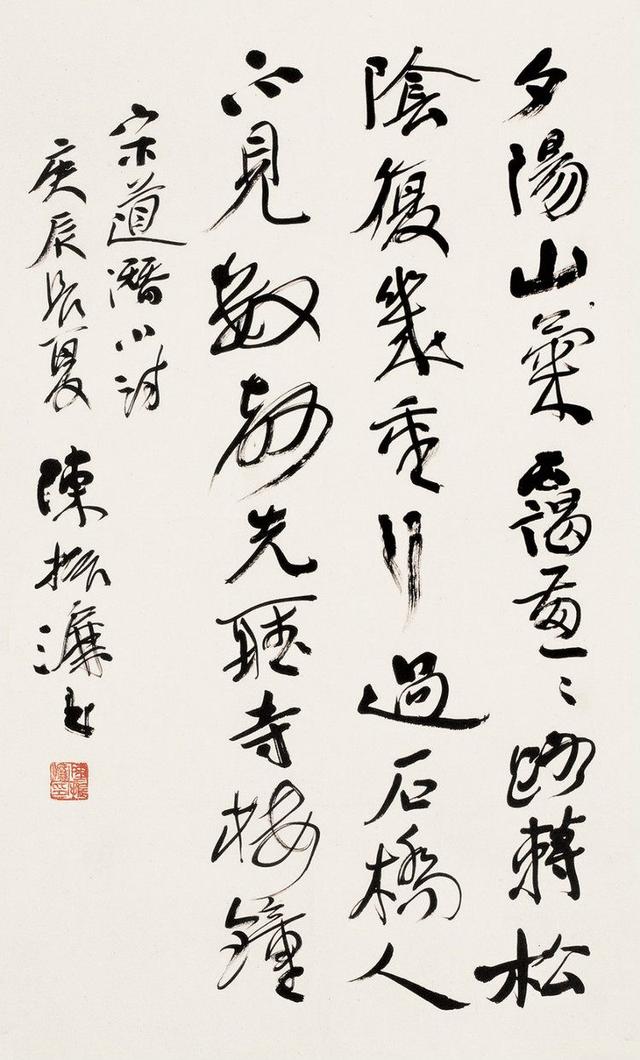 夕陽山氣靄路轉松
陰復幾重行過石橋人
不見數聲先聽寺樓鐘
宋道潛小詩
庚辰長夏 陳振濂書
陳振濂印